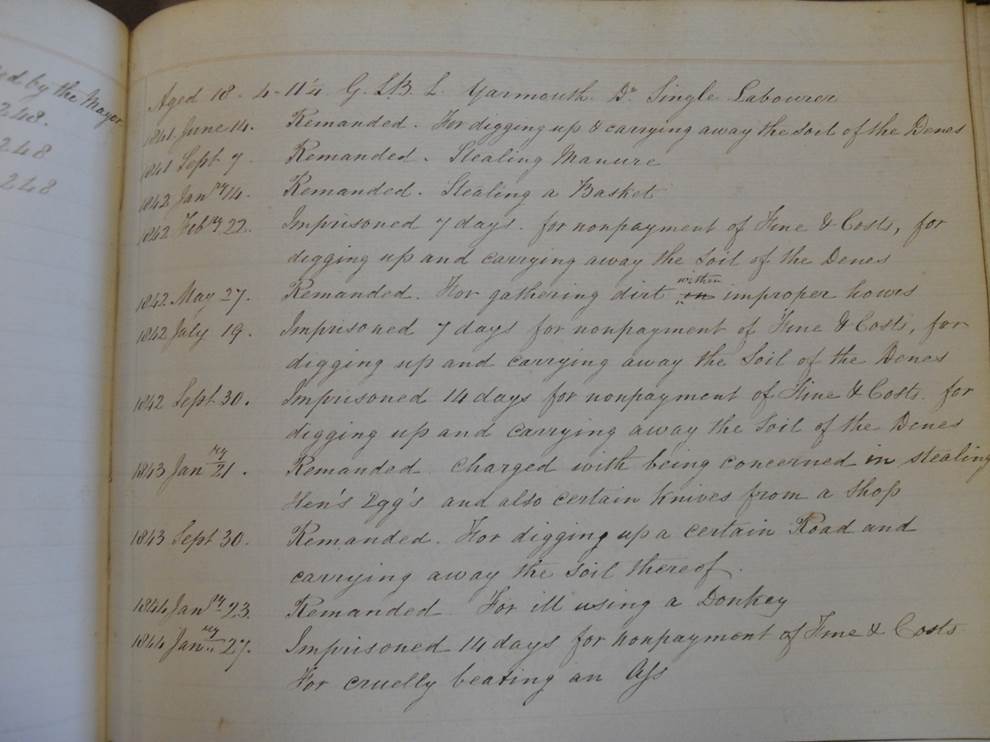 ed by the Mayor
248.
248
248
Aged 18. 4-11¼ G. L.B. L. Yarmouth. Do Single Labourer
1841 June 14. Remanded. For digging up & carrying away the Soil of the Denes
1841 Sept 7. Remanded. Stealing Manure
1842 Janry 14. Remanded. Stealing a Basket
1842 Febry 22. Imprisoned 7 days. for nonpayment of Fine & Costs, for
digging up and carrying away the Soil of the Denes
1842 May 27. Remanded. For gathering dirt within improper hours
1842 July 19. Imprisoned 7 days for nonpayment of Fine & Costs, for
digging up and carrying away the Soil of the Denes
1842 Sept 30. Imprisoned 14 days for nonpayment of Fine & Costs. for
digging up and carrying away the Soil of the Denes
1843 Janry 21. Remanded. Charged with being concerned in stealing
Hen's Egg's and also certain Knives from a Shop
1843 Sept 30. Remanded. For digging up a certain Road and
carrying away the Soil thereof.
1844 Janry 23. Remanded For ill using a Donkey
1844 Janry 27. Imprisoned 14 days for nonpayment of Fine & Costs
For cruelly beating an Ass